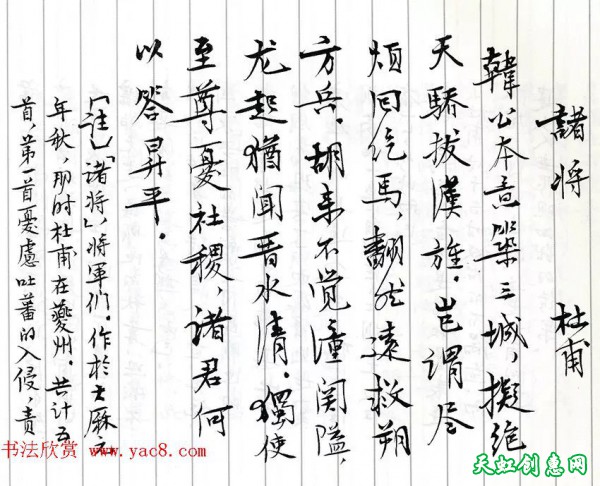 諸将 杜甫
韓公本意築三城，擬絶
天驕拔漢旌。豈謂尽
煩回纥馬，翻然遠救朔
方兵。胡来不觉潼関隘，
龙起猶聞晋水清。獨使
至尊憂社稷，諸君何
以答昇平。
〔注〕「诸将」，将軍们。作於大厤元
年秋，那时杜甫在夔州。共计五
首，第一首憂慮吐蕃的入侵，责
书法欣赏 www.yac8.com
天虹创意网